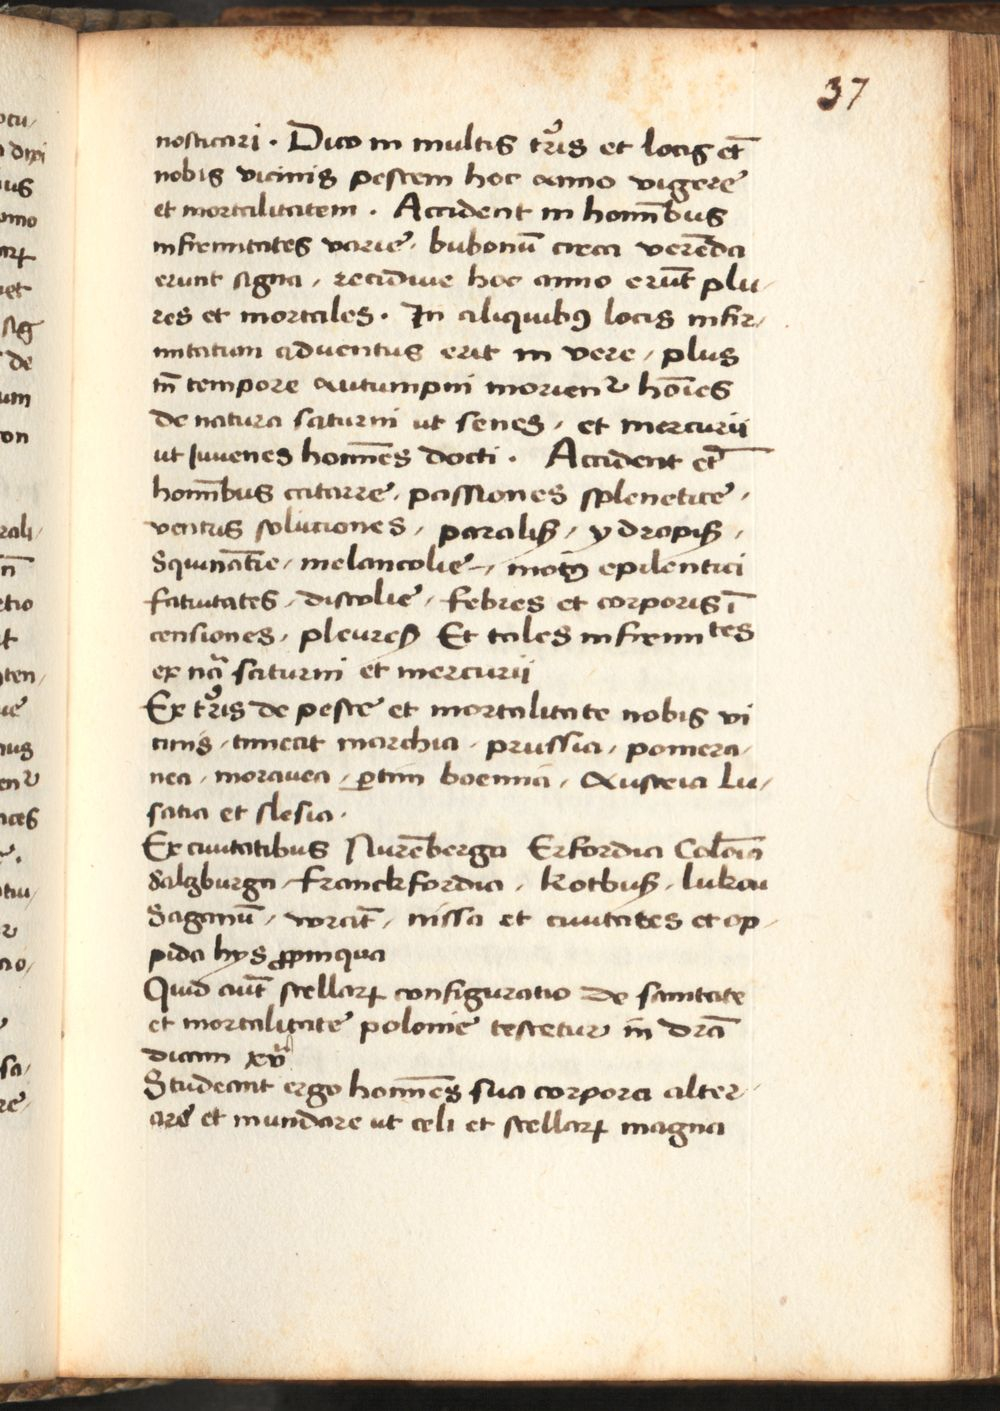 37
nosticari . Dico in multis tr̃is et locis et̃
nobis vicinis pestem hoc anno vigere
et mortalitatem . Accident in homĩbus
infirmitates varie , bubonũ circa verẽda
erunt signa , recidive hoc anno erũt plu-
res et mortales . In aliquibꝰ locis infir-
mitatum adventus erit in vere , plus
tñ tempore autumpni morienť hoĩes
de natura saturni ut senes , et mercurii
ut Juvenes homĩes docti . Accident et̃
homĩbus catarre , passiones splenetice ,
ventris soluciones , paralisꝭ , ydropisꝭ ,
Squinãtie , melancolie , motꝰ epilentici
fatuitates , discolie , febres et corporis ĩ
censiones , pleuresꝭ Et tales infirmitates
ex nã saturni et mercurii
Ex tr̃is de peste et mortalitate nobis vi
cinis , timeat marchia , prussia , pomera-
nea , moravea , ꝑtim boemia , Austria Lu-
satia et slesia .
Ex civitatibus Nurẽberga Erfordia Colõia
Salzburga Franckfordia , Kotbusꝭ , lukau
Saganũ , vratĩ , nissa et civitates et op-
pida hys ꝓpinqua
Quid aũt stellaꝝ configuratio de sanitate
et mortalitate polonie testetur in dr̃ã
dicam xvᵃ
Studeant ergo homĩes sua corpora alter-
are et mundare ut celi et stellaꝝ magna